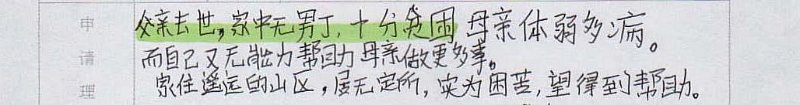 申
请
理
父亲去世,家中无男丁,十分贫困 母亲体弱多病。
而自己又无能力帮助母亲做更多事。
家住遥远的山区,居无定所,实为困苦,望得到帮助。